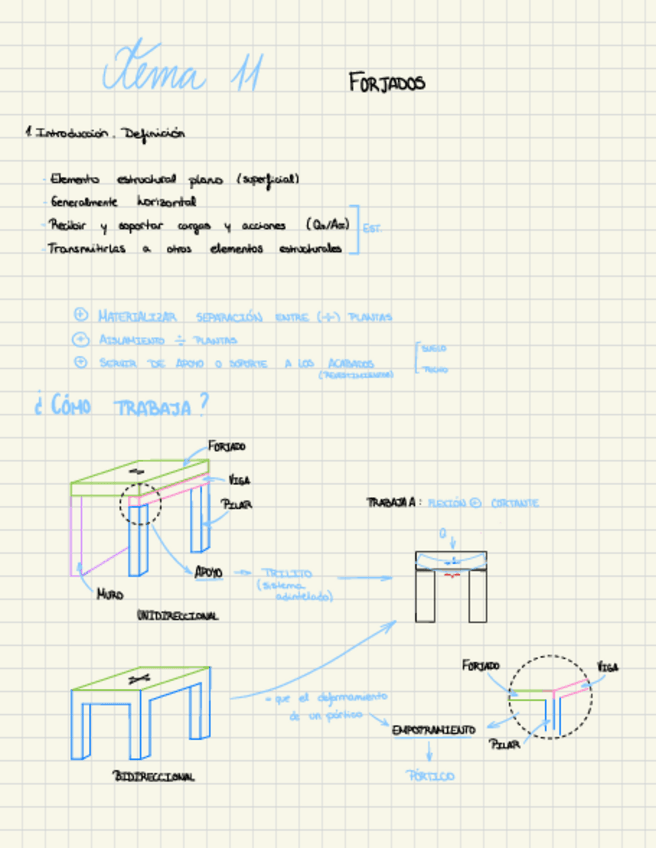 Tema 11
FORJADOS
1. Introducción. Definición
- Elemento estructural plano (superficial)
- Generalmente horizontal
- Recibir y soportar cargas y acciones
- Transmitirlas a otros elementos estructurales
EST.
⊕ MATERIALIZAR SEPARACIÓN ENTRE (-÷-) PLANTAS
⊕ AISLAMIENTO ÷ PLANTAS
⊕ SERVIR DE APOYO O SOPORTE A LOS ACABADOS
(REVESTIMIENTOS)
SUELO
TECHO
¿CÓMO TRABAJA?
FORJADO
VIGA
PILAR
APOYO
MURO
UNIDIRECCIONAL
TRILITO
(sistema
adintelado)
TRABAJA A: FLEXIÓN ⊕ CORTANTE
Q
= que el deformamiento
de un pórtico
EMPOTRAMIENTO
PÓRTICO
FORJADO
VIGA
PILAR
BIDIRECCIONAL